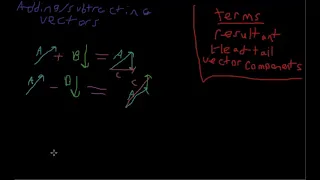 Adding/subtracting
vectors
A + B = A
C
A - B = C
A
terms
resultant
Head tail
vector components